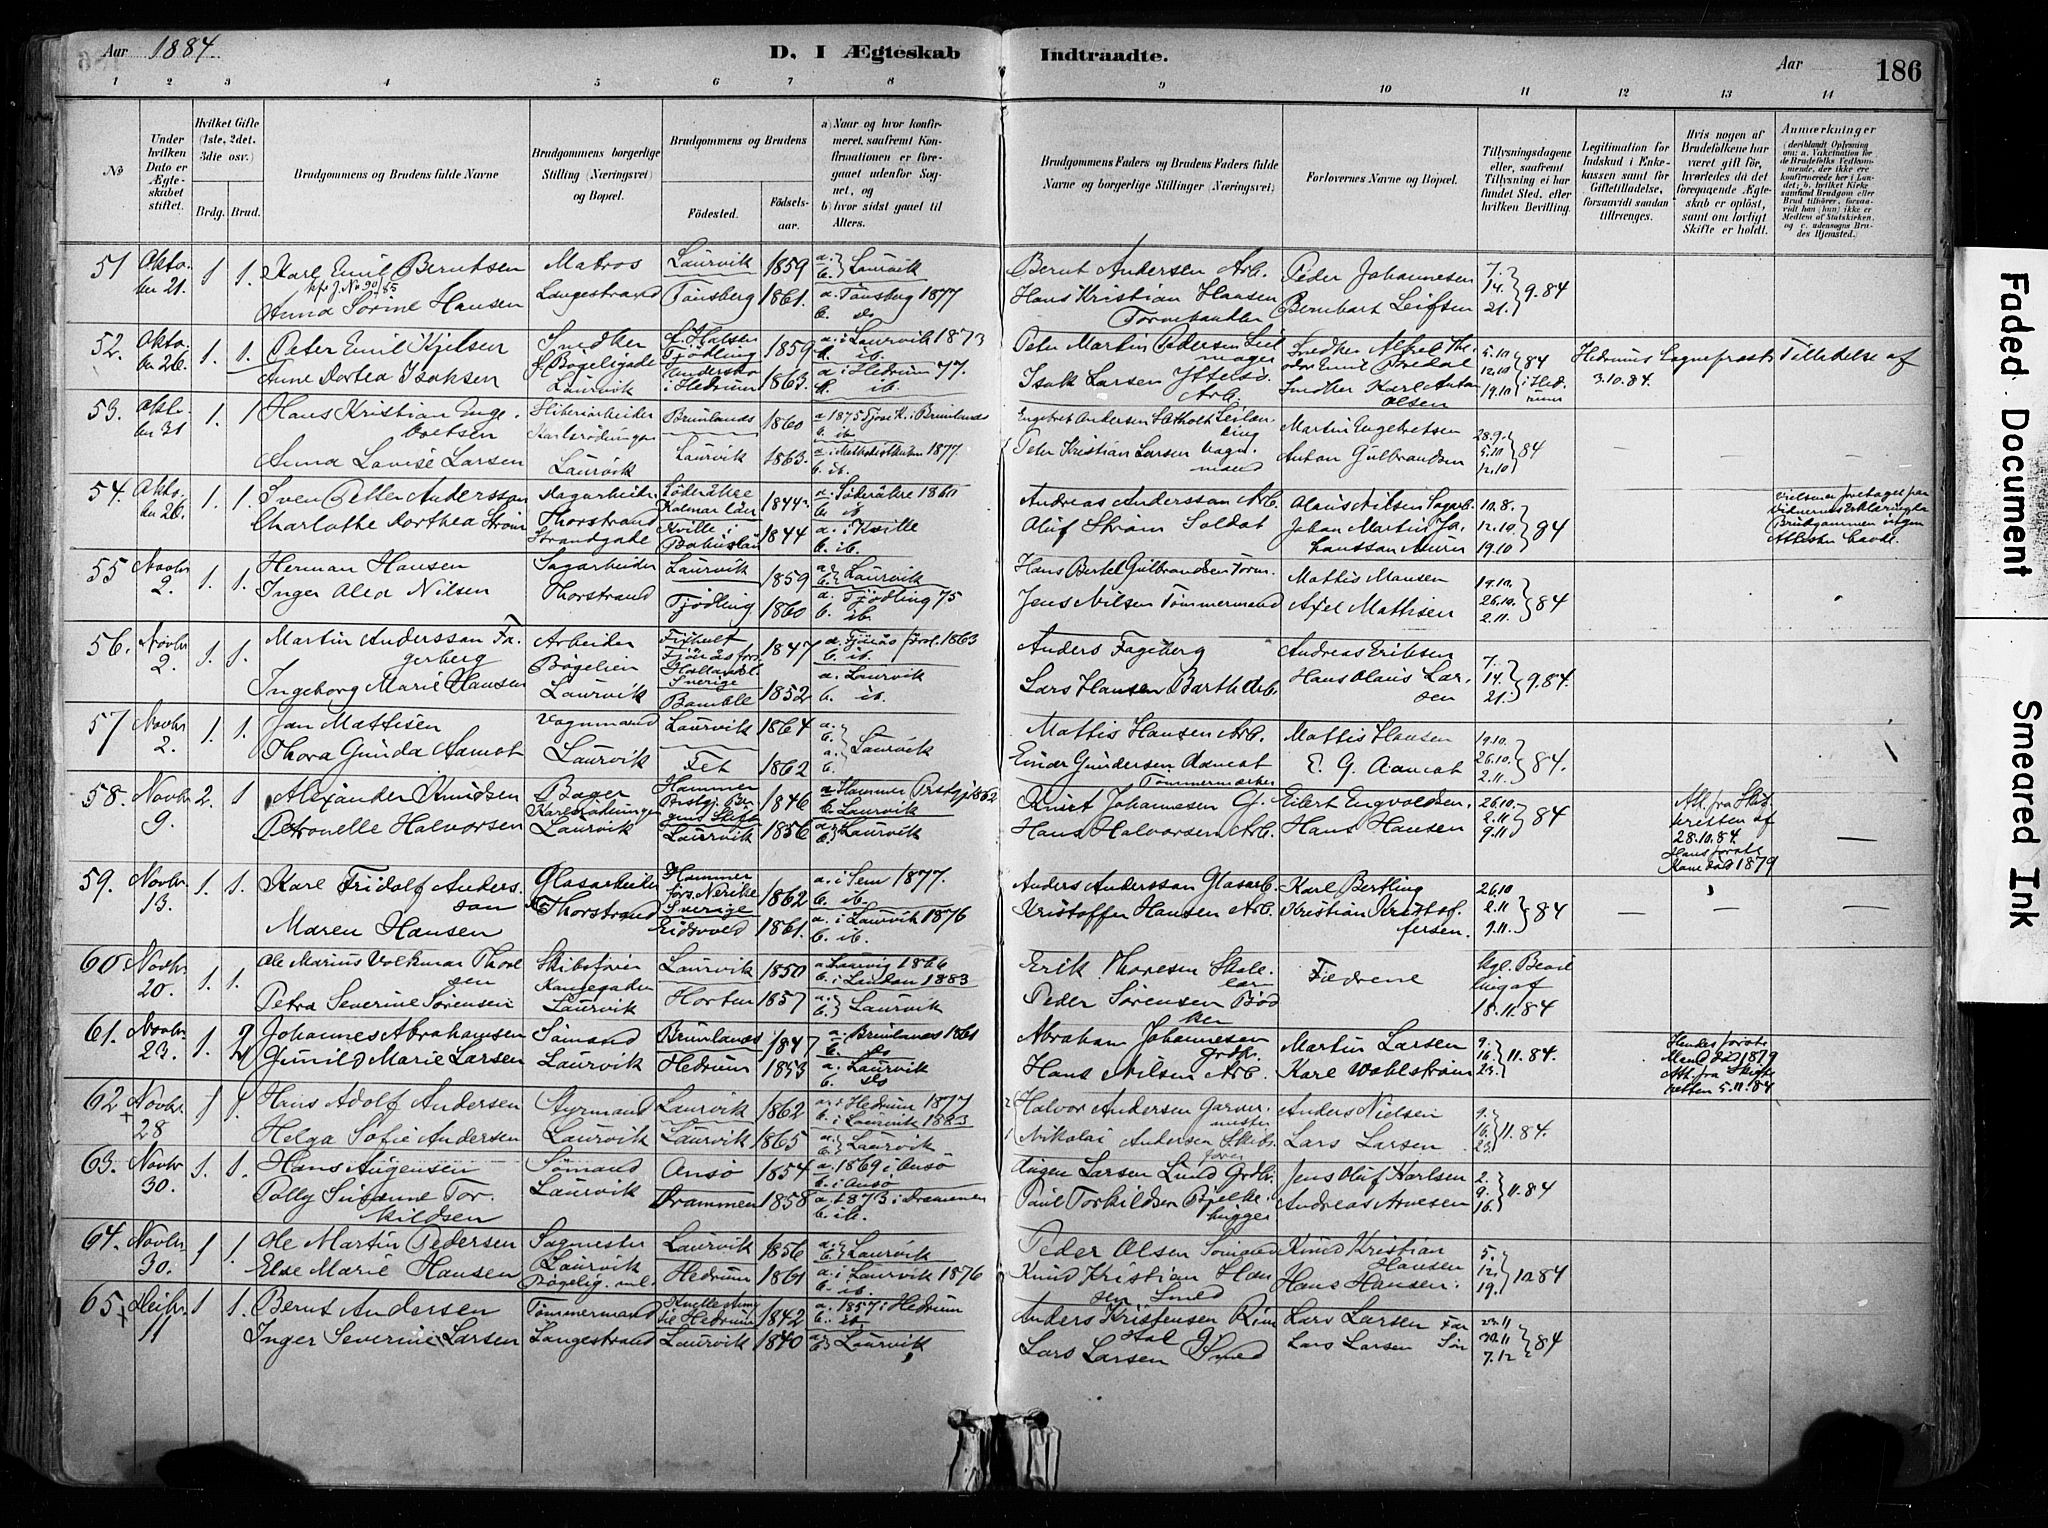 Aar 1884.
D. I Ægteskab Indtraadte.
Aar 186
1 2 3 4 5 6 7 8 9 10 11 12 13 14
No
Under hvilken Dato er Ægteskabet stiftet.
Hvilket Gifte (1ste, 2det, 3die osv.)
Brdg. Brud.
Brudgommens og Brudens fulde Navne
Brudgommens borgerlige Stilling (Næringsvei) og Bopæl.
Brudgommens og Brudens
Fødested.
Fødselsaar.
a) Naar og hvor konfirmeret, saafremt Konfirmationen er foregaaet udenfor Sognet, og
b) hvor sidst gaaet til Alters.
Brudgommens Faders og Brudens Faders fulde Navne og borgerlige Stillinger (Næringsvei).
Forlovernes Navne og Bopæl.
Tillysningsdagene eller, saafremt Tillysning ei har fundet Sted, efter hvilken Bevilling.
Legitimation for Indskud i Enkekassen samt for Giftetilladelse, forsaavidt saadan tiltrænges.
Hvis nogen af Brudefolkene har været gift før, hvorledes da det foregaaende Ægteskab er opløst, samt om lovligt Skifte er holdt.
Anmerkninger (deriblandt Oplysning om: a. Vakcination for de Brudefolks Vedkommende, der ikke ere konfirmerede her i Landet; b. hvilket Kirkesamfund Brudgom eller Brud tilhører, forsaavidt han (hun) ikke er Medlem af Statskirken, og c. udensogns Brudes Hjemsted.)
51 Oktober 21. 1 1. Karl Emil Berntsen Matros Laurvik 1859 a. b. Laurvik Bernt Andersen Arb. Peder Johannesen 7. 14. 21. 9.84
Anna Sørine Hansen Langestrand Tønsberg 1861. a. Tønsberg 1877 b. do Hans Kristian Hansen Bernhart Leifsen
52. Oktober 26. 1. 1. Peter Emil Kjelsen Snedker Tjødling 1859 a. i Laurvik 1873 b. ib. Peter Martin Pedersen 5.10 12.10 19.10 84 i Hedrum Hedrums Sognepræsts Tilladelse af 3.10.84.
Anne Dortea Isaksen Bøgeligade Laurvik i Hedrum 1863. a. i Hedrum 77. b. ib. Isak Larsen Yttersø Arb. Snedker Karl Anton Olsen
53. Oktober 31 1. 1 Hans Kristian Engebretsen Sliberiarbeider Brunlanæs 1860 b. ib. Martin Engebretsen 28.9. 5.10 12.10 84 — — —
Anna Lovise Larsen Laurvik Laurvik 1863. 1877. b. ib. Peter Kristian Larsen Vognmand Anton Gulbrandsen
54. Oktober 26. 1. 1. Sven Petter Andersson Dagarbeider Söderåkre Kalmar län 1844 a. Söderåkre 1860 b. ib Andreas Andersson Arb. Olaus Nilsen 10.8. 12.10 19.10 84
Charlotte Dorthea Strøm Thorstrand Strandgade Kville i Bohuslän 1844 a. i Kville b. ib. Oluf Strøm Soldat Johan Martin
55 Novbr 2. 1. 1. Herman Hansen Sagarbeider Laurvik 1859 a. b. Laurvik Hans Bertel Gulbrandsen Mattis Mansen 19.10. 26.10. 2.11. 84
Inger Alea Nilsen Thorstrand Tjødling 1860 a. Tjødling 75 b. ib. Jens Nilsen Tømmermand Axel Mattisen
56. Novbr 2. 1. 1. Martin Andersson Fagerberg Arbeider Sverige 1847 1863 b. ib. Anders Fagerberg Andreas Eriksen 7. 14. 21. 9.84.
Ingeborg Marie Hansen Bøgelien Laurvik Bamble 1852 a. Laurvik b. ib. Lars Hansen Barth Arb. Hans Olaus Larsen
57 Novbr 2. 1. 1. Jan Mattisen Vognmand Laurvik 1864 a. b. Laurvik Mattis Hansen Arb. Mattis Hansen 19.10. 26.10. 2.11. 84.
Thora Gunda Aamot Laurvik Fet 1862 a. b. Einar Gundersen Aamot Tømmermærker E. G. Aamot
58. Novbr 9. 2. 1 Alexander Knudsen Bager Hammer 1846 a. Hammer 1862 b. Laurvik Knut Johannesen Eilert Engvoldsen 26.10. 2.11 9.11 84 Att. fra Skifteretten af 28.10.84. Hans første Kone død 1879 —
Petronelle Halvorsen Laurvik Laurvik 1856 Laurvik Hans Halvorsen Arb. Hans Hansen
59. Novbr 13. 1. 1. Karl Fridolf Andersson Glasarbeider Hammer Nerike Sverige 1862 a. i Sem 1877. b. ib. Anders Andersson Glasarb. Karl Bertling 26.10 2.11 9.11. 84 — — —
Maren Hansen Thorstrand Eidsvold 1861. a. i Laurvik 1876 b. ib. Kristoffer Hansen Arb. Kristian Kristoffersen.
60. Novbr 20. 1. 1. Ole Marius Volkmar Thoresen Skibsfører Laurvik 1850 1866 b. i London 1883 Erik Thoresen Fædrene kgl. Bevilling af 18.11.84
Petra Severine Sørensen Kongegaden Laurvik Horten 1857 a. b. Laurvik Peder Sørensen Bødker
61. Novbr. 23. 1. 2 Johannes Abrahamsen Sømand Brunlanæs 1847 a. Brunlanæs 1861 b. do Abraham Johannesen Martin Larsen 9. 16. 23. 11.84. Hendes første Mand død 1879 Att. fra Skifteretten 5.11.84
Gunild Marie Larsen Laurvik Hedrum 1853 a. Laurvik b. do Hans Nilsen Arb. Karl Wahlstrøm
62 Novbr. 28 1 1. Hans Adolf Andersen Styrmand Laurvik 1862 a. i Hedrum 1877 b. i Laurvik 1883 Halvor Andersen Garvermester Anders Nielsen 9. 16. 23. 11.84.
Helga Sofie Andersen Laurvik Laurvik 1865 a. b. Laurvik Nikolai Andersen Skibsfører Lars Larsen
63. Novbr 30. 1. 1. Hans Augensen Sømand Onsø 1854 a. 1869 i Onsø b. i Onsø Augen Larsen Lund Jens Oluf Karlsen 2. 9. 16. 11.84
Polly Susanne Torkildsen Laurvik Drammen 1858 a. 1873 i Drammen b. ib. Paul Torkildsen Bjelkehugger Andreas Arnesen
64. Novbr 30. 1 1. Ole Martin Pedersen Sagmester Laurvik 1856 a. b. Laurvik Peder Olsen Sømand Knud Kristian Hansen 5. 12. 19. 10.84
Else Marie Hansen Laurvik Hedrum 1861 a. i Laurvik 1876 b. ib. Knud Kristian Hansen Smed Hans Hansen.
65 11 1 1. Bernt Andersen Tømmermand Hedrum 1842 a. 1857 i Hedrum b. ib Anders Kristensen Lars Larsen Far 23.11 30.11 7.12 84
Inger Severine Larsen Langestrand Laurvik 1840 a. b. Laurvik Lars Larsen Smed Lars Larsen Søn
Faded Document
Smeared Ink